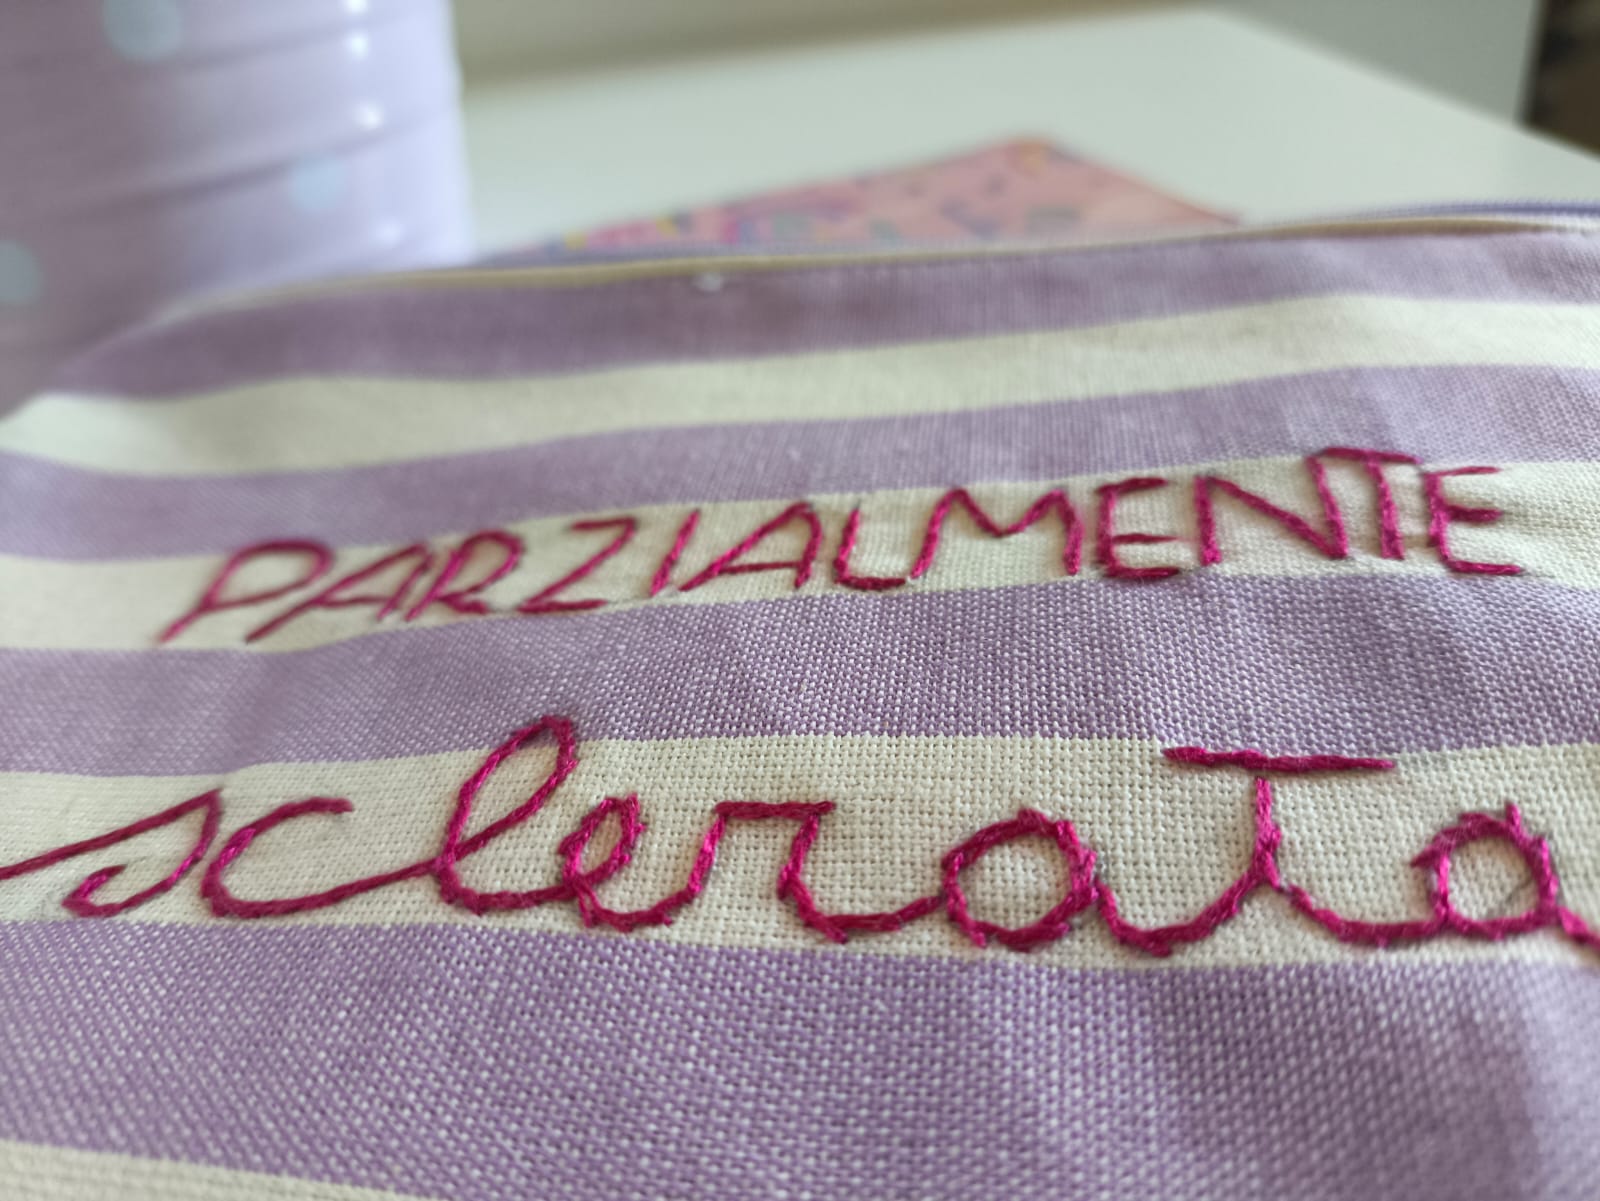 PARZIALMENTE
sclerata